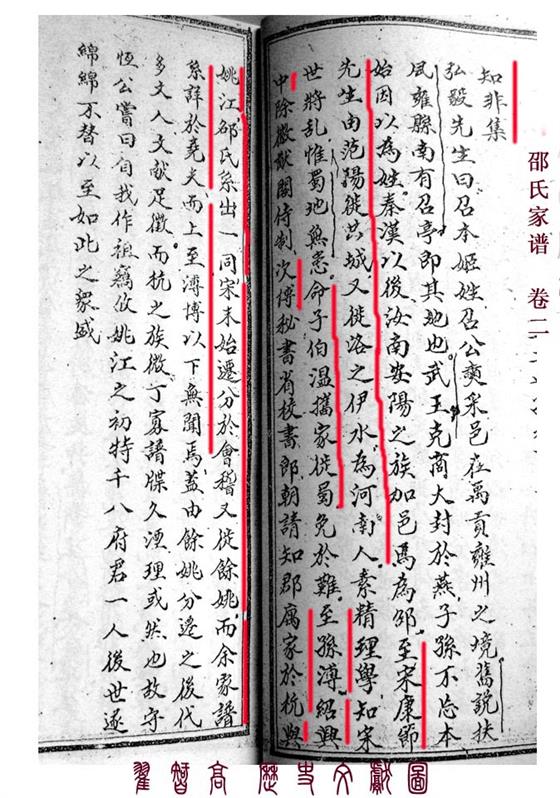 邵氏家谱 卷二
知非集
弘毅先生曰召本姬姓召公奭采邑在禹貢雍州之境舊說扶
風雍縣南有召亭即其地也武王克商大封於燕子孫不忘本
始因以為姓秦漢以後汝南安陽之族加邑焉為邵至宋康節
先生由范陽徙共城又徙洛之伊水為河南人素精理學知宋
世將乱惟蜀地無恙命子伯温攜家徙蜀免於難至孫溥紹興
中除徽猷閣侍制次傅秘書省校書郎朝請知郡屬家於杭與
姚江邵氏系出一同宋末始遷分於會稽又徙餘姚而余家譜
系詳於堯夫而上至溥博以下無聞焉蓋由餘姚分遷之後代
多文人文献足徵而杭之族微丁寡譜牒久湮理或然也故守
恆公嘗曰自我作祖竊攸姚江之初特千八府君一人後世遂
綿綿不替以至如此之衆盛
翟智高歷史文獻圖